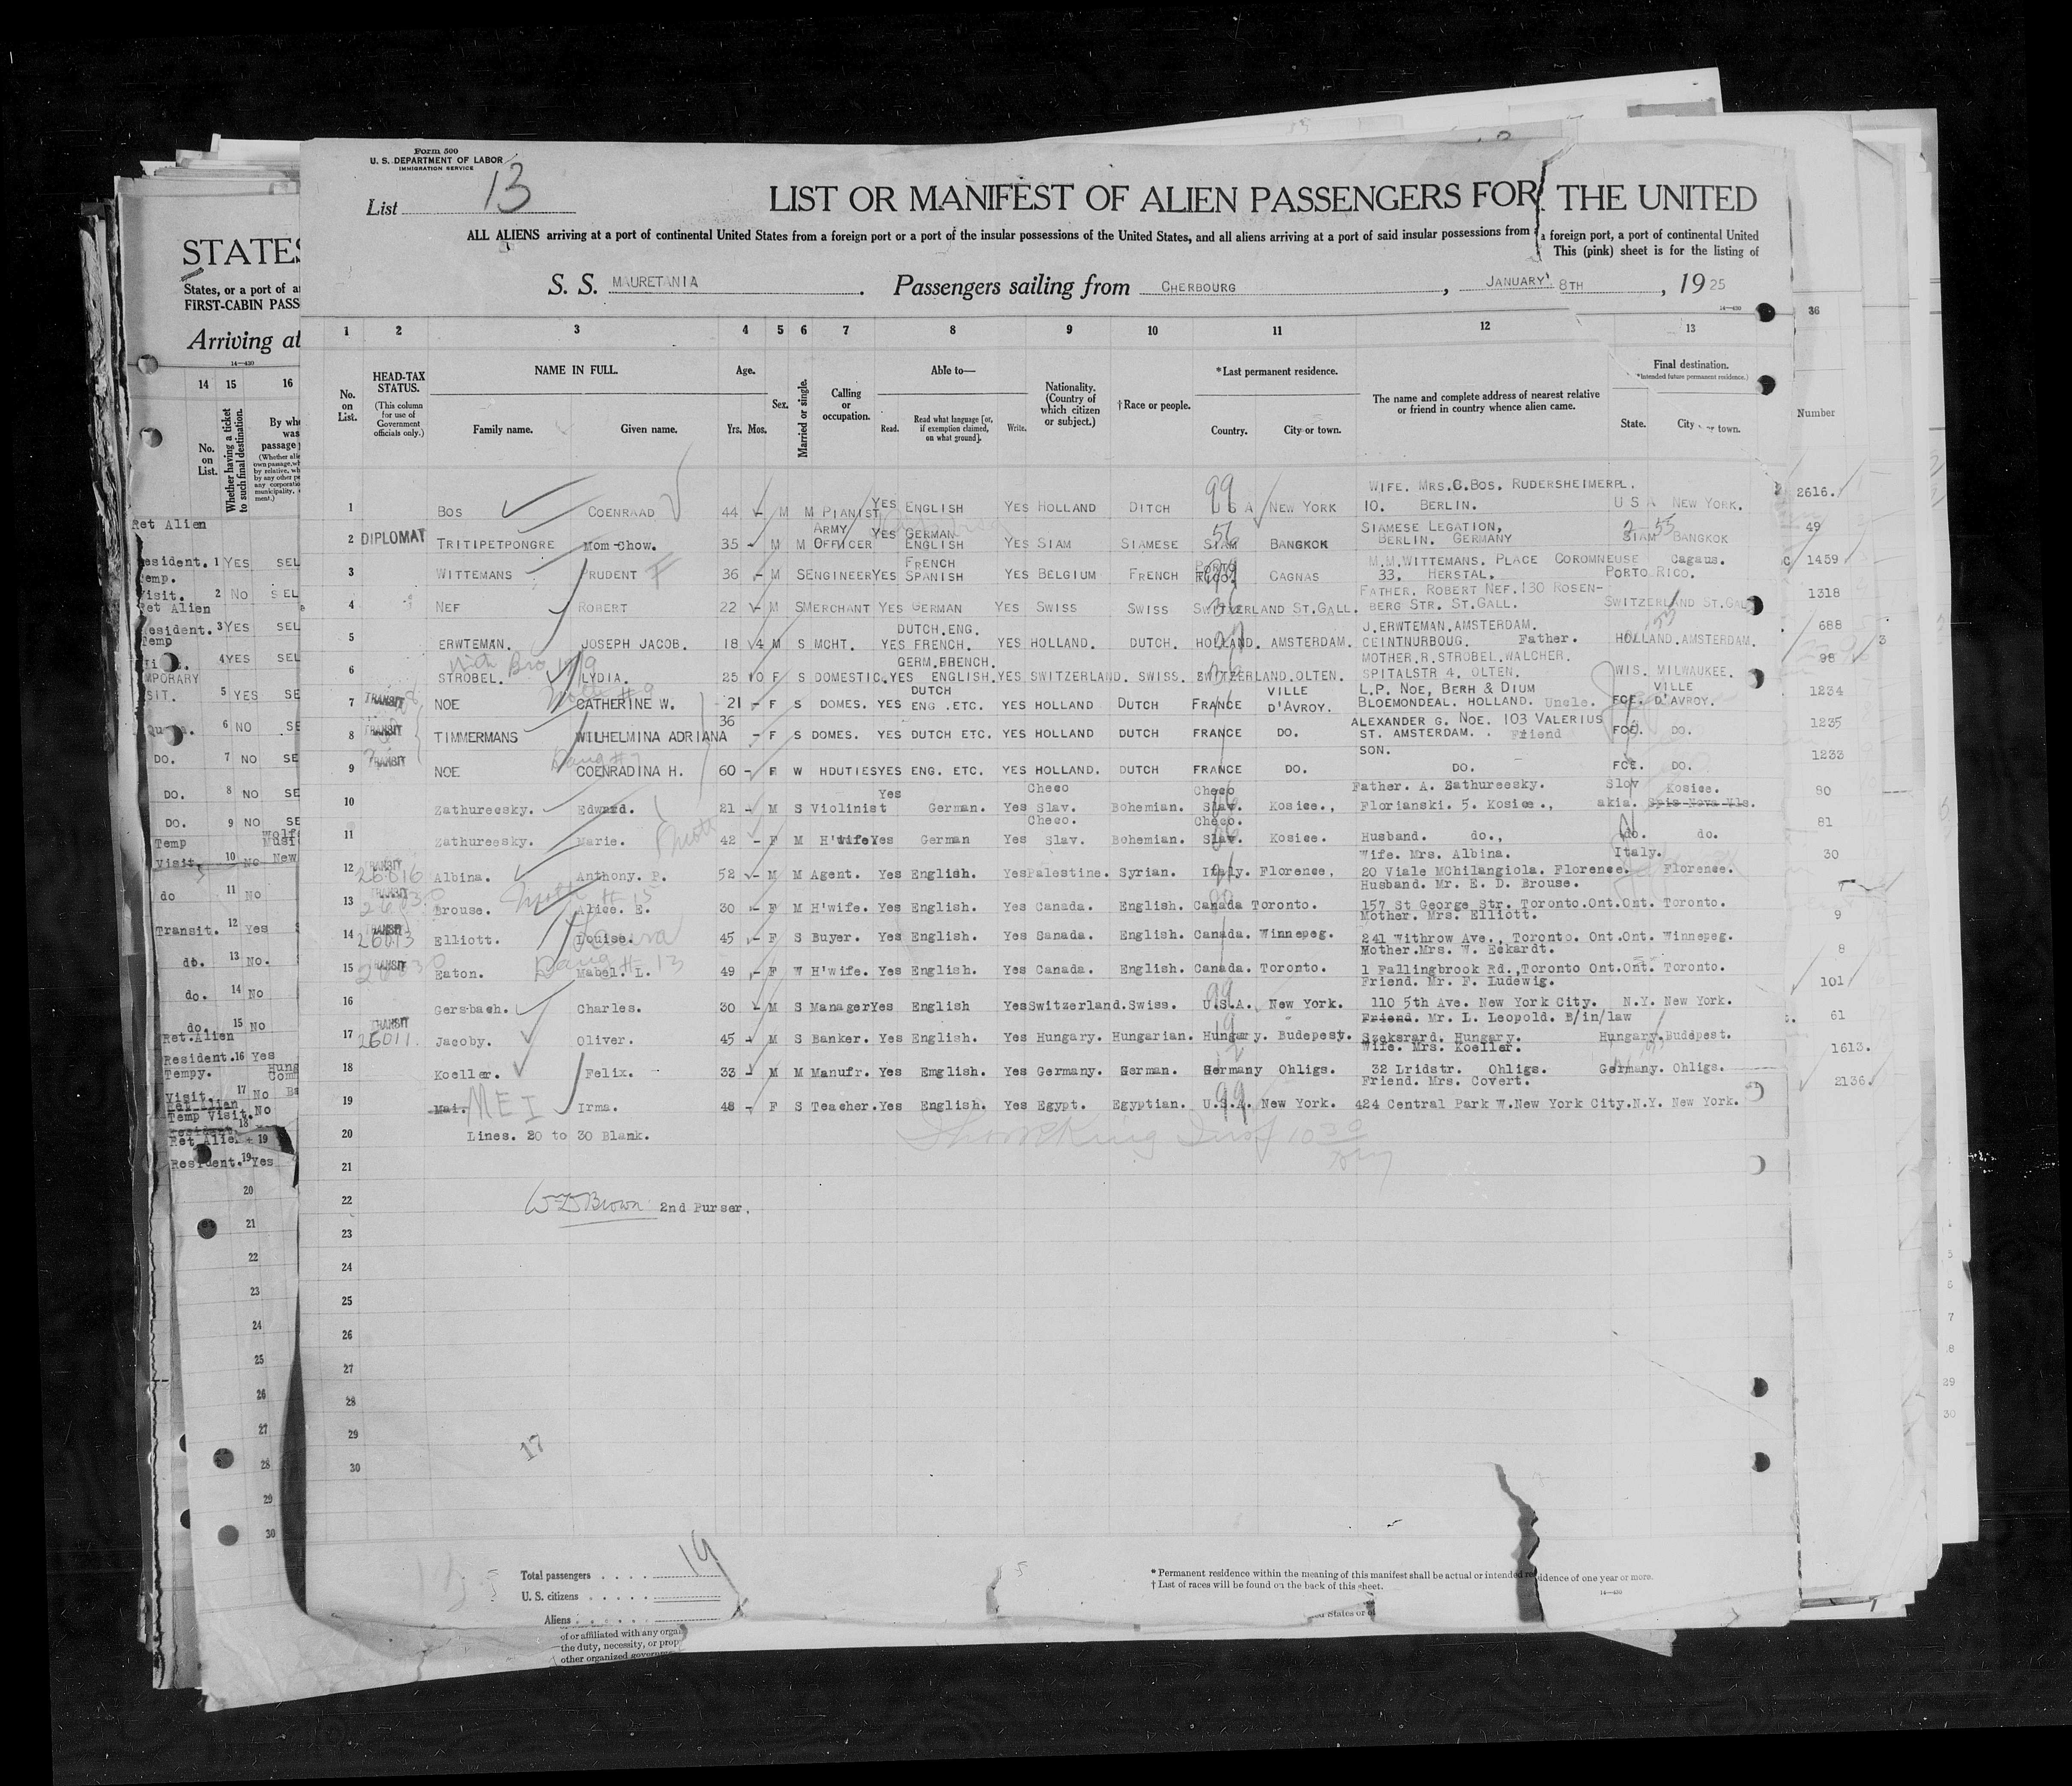 Form 500
U. S. DEPARTMENT OF LABOR
IMMIGRATION SERVICE
List 13
LIST OR MANIFEST OF ALIEN PASSENGERS FOR THE UNITED
ALL ALIENS arriving at a port of continental United States from a foreign port or a port of the insular possessions of the United States, and all aliens arriving at a port of said insular possessions from a foreign port, a port of continental United
This (pink) sheet is for the listing of
S. S. MAURETANIA. Passengers sailing from CHERBOURG, JANUARY 8TH, 1925
14—430
1 2 3 4 5 6 7 8 9 10 11 12 13
No. on List.
HEAD-TAX STATUS.
(This column for use of Government officials only.)
NAME IN FULL.
Family name. Given name.
Age.
Yrs. Mos.
Sex.
Married or single.
Calling or occupation.
Able to—
Read. Read what language [or, if exemption claimed, on what ground]. Write.
Nationality. (Country of which citizen or subject.)
†Race or people.
*Last permanent residence.
Country. City or town.
The name and complete address of nearest relative or friend in country whence alien came.
Final destination.
*Intended future permanent residence.)
State. City or town.
WIFE. MRS.C.BOS. RUDERSHEIMERPL.
1 BOS COENRAAD 44 - M M PIANIST YES ENGLISH YES HOLLAND DITCH 99 U S A NEW YORK 10. BERLIN. U S A NEW YORK.
2 DIPLOMAT TRITIPETPONGRE MOM-CHOW. 35 - M M ARMY OFFICER YES GERMAN ENGLISH YES SIAM SIAMESE 56 SIAM BANGKOK SIAMESE LEGATION, BERLIN. GERMANY SIAM BANGKOK
3 WITTEMANS PRUDENT 36 - M S ENGINEER YES FRENCH SPANISH YES BELGIUM FRENCH PORTO RICO. CAGNAS M.M.WITTEMANS. PLACE COROMNEUSE 33. HERSTAL. PORTO RICO. Caguas.
4 NEF ROBERT 22 - M S MERCHANT YES GERMAN YES SWISS SWISS SWITZERLAND ST.GALL. FATHER. ROBERT NEF.130 ROSEN-BERG STR. ST.GALL. SWITZERLAND ST.GALL
5 ERWTEMAN. JOSEPH JACOB. 18 4 M S MCHT. YES DUTCH.ENG. FRENCH. YES HOLLAND. DUTCH. HOLLAND. AMSTERDAM. J.ERWTEMAN.AMSTERDAM. CEINTNURBOUG. Father. HOLLAND.AMSTERDAM.
6 STROBEL. LYDIA. 25 10 F S DOMESTIC.YES GERM.BRENCH. ENGLISH.YES SWITZERLAND. SWISS. SWITZERLAND.OLTEN. MOTHER.R.STROBEL.WALCHER. SPITALSTR 4. OLTEN. WIS. MILWAUKEE.
7 TRANSIT NOE CATHERINE W. 21 - F S DOMES. YES DUTCH ENG .ETC. YES HOLLAND DUTCH FRANCE VILLE D'AVROY. L.P. NOE, BERH & DIUM BLOEMONDEAL. HOLLAND. Uncle. FCE. VILLE D'AVROY.
8 TRANSIT TIMMERMANS WILHELMINA ADRIANA 36 - F S DOMES. YES DUTCH ETC. YES HOLLAND DUTCH FRANCE DO. ALEXANDER G. NOE. 103 VALERIUS ST. AMSTERDAM. . Friend FCE. DO.
9 TRANSIT NOE COENRADINA H. 60 - F W HDUTIES YES ENG. ETC. YES HOLLAND. DUTCH FRANCE DO. SON. DO. FCE. DO.
10 Zathureesky. Edward. 21 - M S Violinist Yes German. Yes Checo Slav. Bohemian. Checo Slav. Kosice., Father. A. Sathureesky. Florianski. 5. Kosice., Slov akia. Kosice. Spis Nova Vls.
11 Zathureesky. Marie. 42 - F M H'wife Yes German Yes Checo. Slav. Bohemian. Checo. Slav. Kosice. Husband. do., do. do.
12 TRANSIT 26016 Albina. Anthony. P. 52 - M M Agent. Yes English. Yes Palestine. Syrian. Italy. Florence, Wife. Mrs. Albina. 20 Viale MChilangiola. Florence. Italy. Florence.
13 TRANSIT Brouse. Alice. E. 30 - F M H'wife. Yes English. Yes Canada. English. Canada Toronto. Husband. Mr. E. D. Brouse. 157 St George Str. Toronto.Ont.Ont. Toronto.
14 TRANSIT 26013 Elliott. Louise. Laura 45 - F S Buyer. Yes English. Yes Sanada. English. Canada. Winnepeg. Mother. Mrs. Elliott. 241 Withrow Ave., Toronto. Ont.Ont. Winnepeg.
15 TRANSIT Eaton. Mabel. L. Daug # 13 49 - F W H'wife. Yes English. Yes Canada. English. Canada. Toronto. Mother.Mrs. W. Eckardt. 1 Fallingbrook Rd.,Toronto Ont.Ont. Toronto.
16 Gersbach. Charles. 30 - M S Manager Yes English Yes Switzerland.Swiss. 99 U.S.A. New York. Friend. Mr. F. Ludewig. 110 5th Ave. New York City. N.Y. New York.
17 TRANSIT 26011. Jacoby. Oliver. 45 - M S Banker. Yes English. Yes Hungary. Hungarian. Hungary. Budepest. Friend. Mr. L. Leopold. B/in/law Szeksrard. Hungary. Hungary.Buddpest.
18 Koeller. Felix. 33 - M M Manufr. Yes Emglish. Yes Germany. German. Germany Ohligs. Wife. Mrs. Koeller. 32 Lridstr. Ohligs. Germany. Ohligs.
19 Mai. MEI Irma. 48 - F S Teacher. Yes English. Yes Egypt. Egyptian. 99 U.S.A. New York. Friend. Mrs. Covert. 424 Central Park W.New York City.N.Y. New York.
20 Lines. 20 to 30 Blank.
21
22 W D Brown 2nd Purser.
23
24
25
26
27
28
29
30
17
Total passengers 19
U. S. citizens
Aliens
* Permanent residence within the meaning of this manifest shall be actual or intended residence of one year or more.
† List of races will be found on the back of this sheet.
14—430
of or affiliated with any organ
the duty, necessity, or prop
other organized govern
States or of
STATES
States, or a port of a
FIRST-CABIN PASS
Arriving at
14—430
14 15 16
No. on List.
Whether having a ticket to such final destination.
Ret Alien
esident. 1 YES SEL
Temp.
Visit. 2 NO SEL
Ret Alien
esident. 3 YES SEL
Temp
4 YES SEL
MPORARY
SIT. 5 YES SE
6 NO SE
DO. 7 NO SE
DO. 8 NO SE
DO. 9 NO SE
Temp
Visit. 10 NO New
do 11 No
Transit. 12 Yes
do. 13 No.
do. 14 No
do. 15 No
Ret.Alien
Resident. 16 Yes
Tempy.
Visit. 17 No
Temp Visit. No
18
Ret Alien 19
Resident. 19 Yes
20
21
22
23
24
25
26
27
28
29
30
36
Number
2616.
49
1459
1318
688
98
1234
1235
1233
80
81
30
9
8
101
61
1613.
2136.
29
30